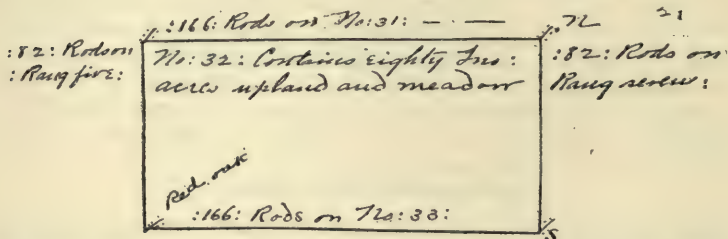 :166: Rods on No:31: — · —
N
21
:82: Rods on
: Rang five:
No: 32: Contains eighty Two:
acres upland and meadow
:82: Rods on
Rang seven:
Red oak
:166: Rods on No: 33:
S